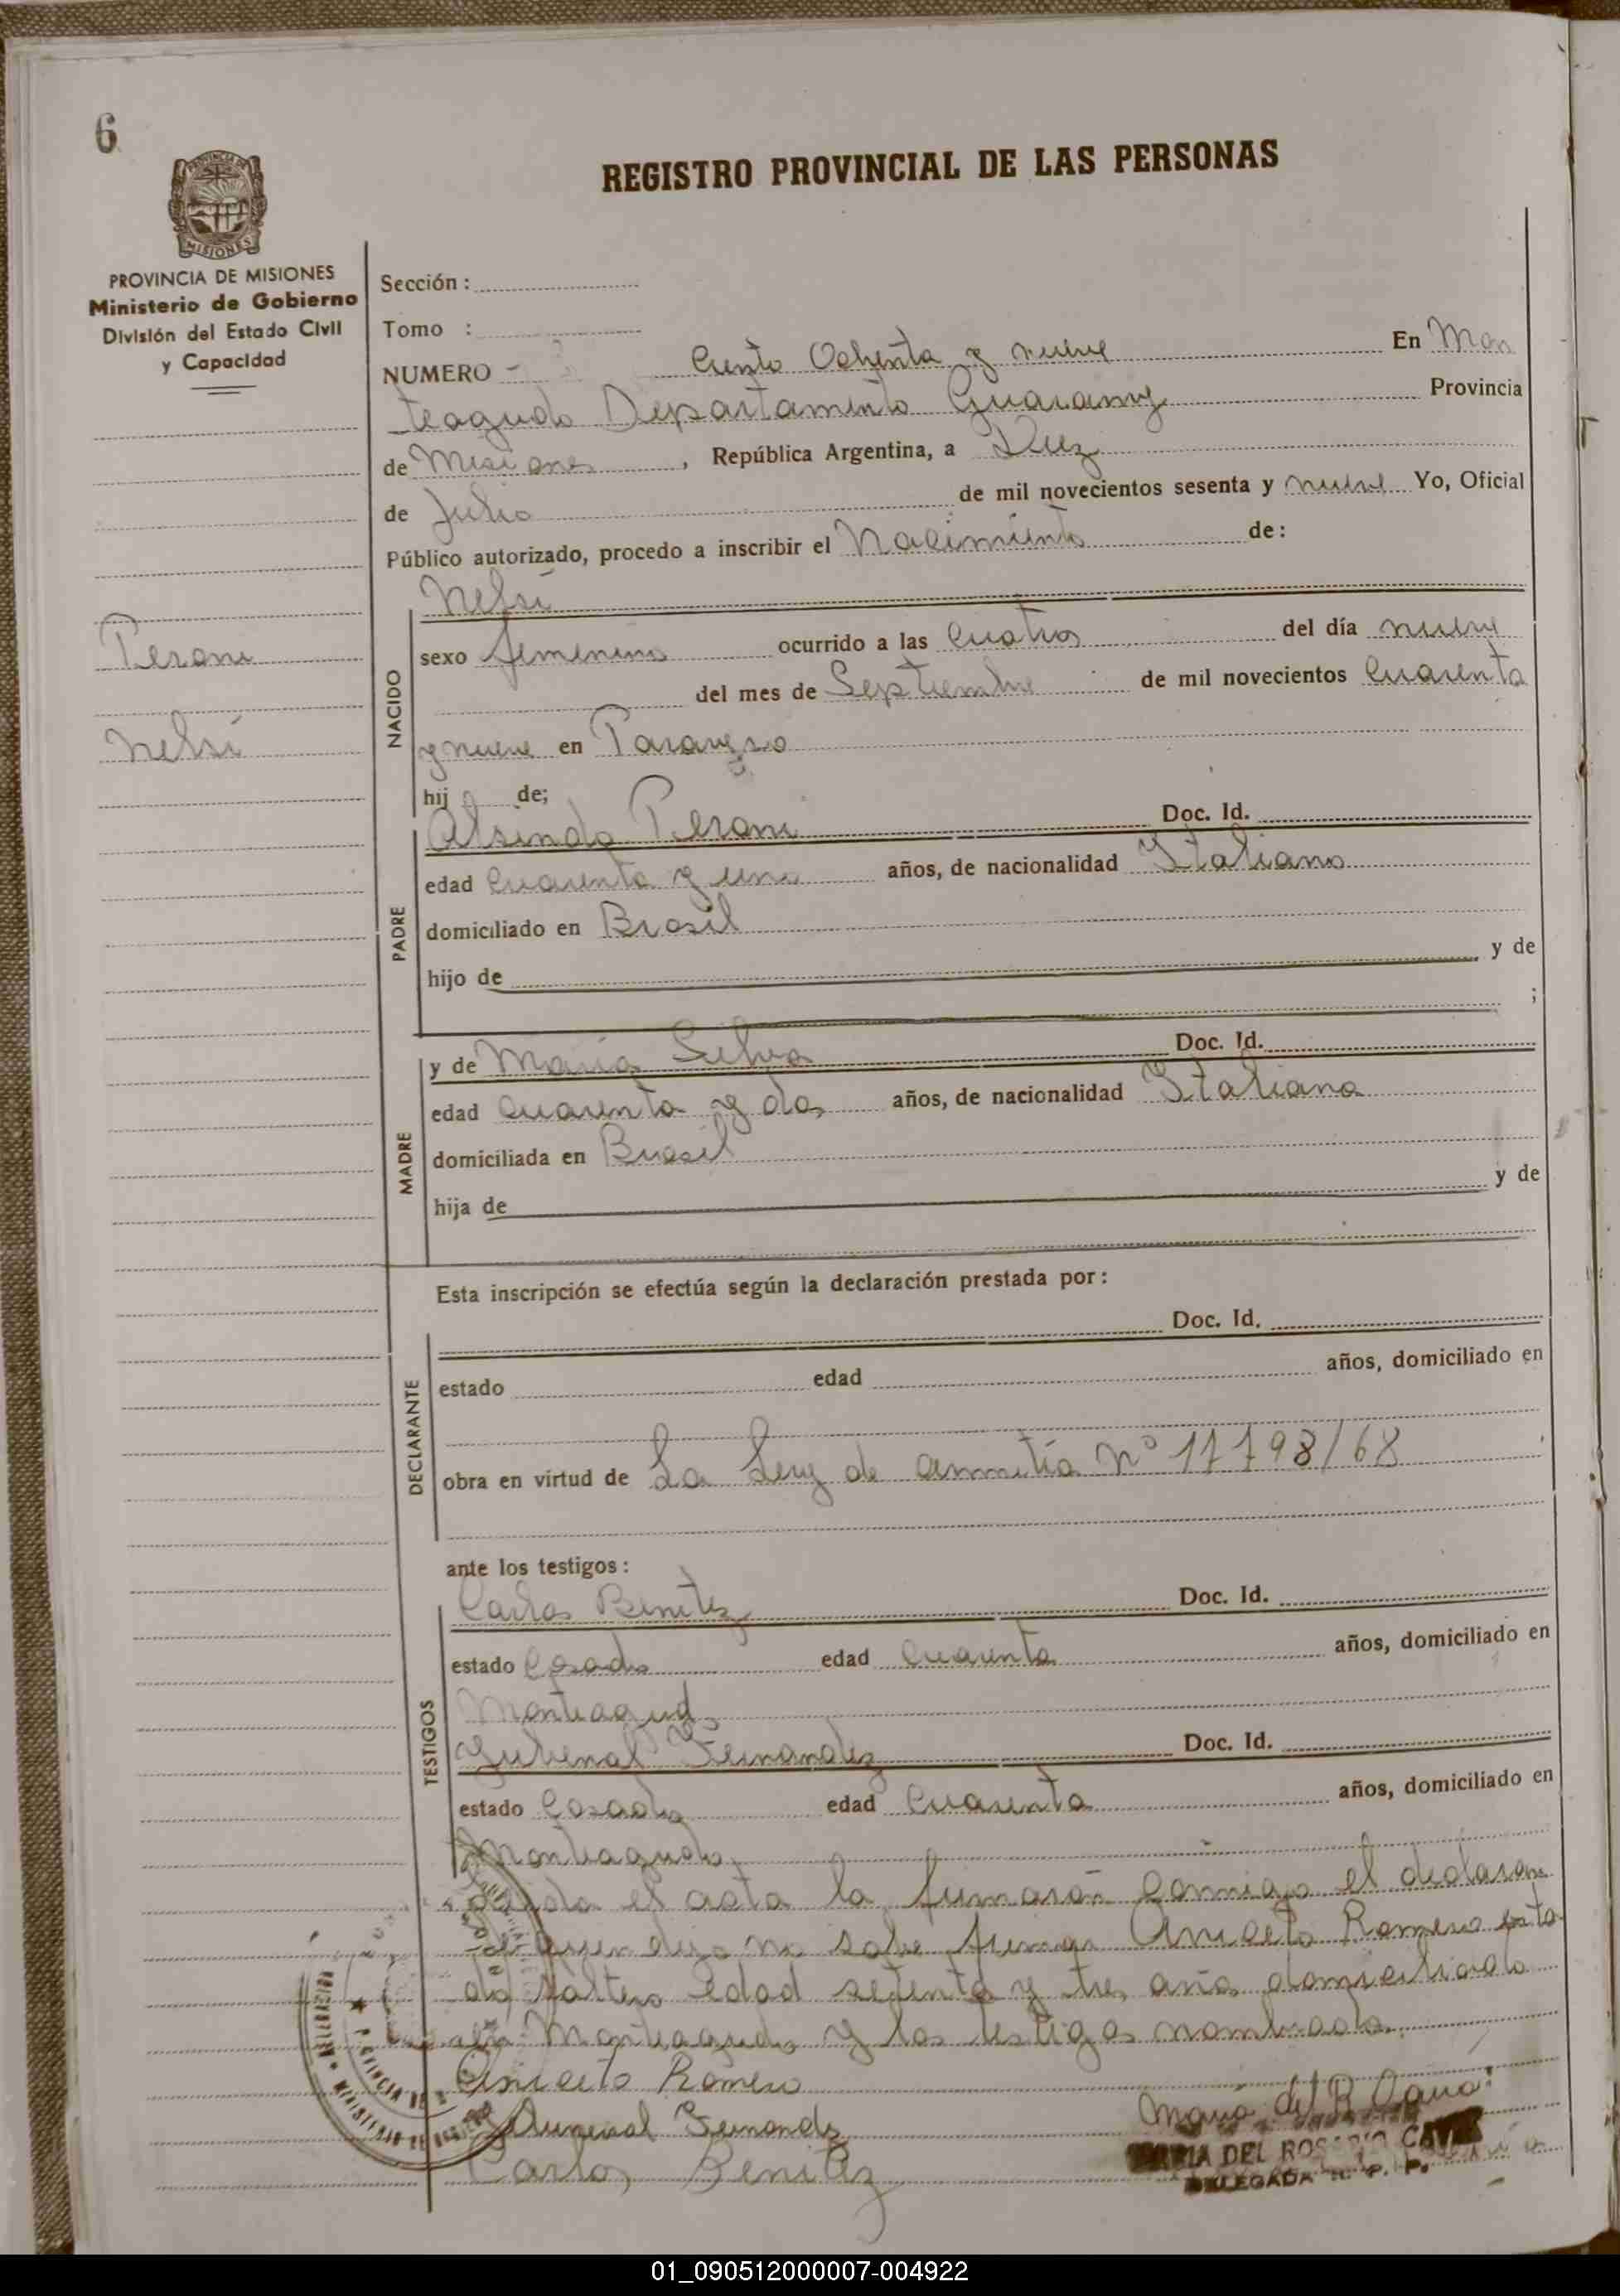 6
REGISTRO PROVINCIAL DE LAS PERSONAS
PROVINCIA DE MISIONES
Ministerio de Gobierno
División del Estado Civil
y Capacidad
Sección :
Tomo :
NUMERO - Ciento Ochenta y nueve En Mon
teagudo Departamento Guarany Provincia
de Misiones , República Argentina, a Diez
de Julio de mil novecientos sesenta y nueve Yo, Oficial
Público autorizado, procedo a inscribir el Nacimiento de :
Nelsi
Perani
Nelsi
NACIDO
sexo femenino ocurrido a las Cuatro del día nueve
del mes de Septiembre de mil novecientos Cuarenta
y nueve en Parayso
hij a de;
PADRE
Alsindo Perani Doc. Id.
edad Cuarenta y uno años, de nacionalidad Italiano
domiciliado en Brasil
hijo de y de
;
MADRE
y de Maria Silva Doc. Id.
edad Cuarenta y dos años, de nacionalidad Italiana
domiciliada en Brasil
hija de y de
Esta inscripción se efectúa según la declaración prestada por :
DECLARANTE
Doc. Id.
estado edad años, domiciliado en
obra en virtud de La Ley de amnitía N° 17798/68
ante los testigos :
TESTIGOS
Carlos Benitez Doc. Id.
estado Casado edad Cuarenta años, domiciliado en
Monteagudo
Jubenal Fernandez Doc. Id.
estado Casado edad Cuarenta años, domiciliado en
Monteagudo
el acta la firmarón conmigo el declaran
te quien dijo no sabe firmar Aniceto Romero esta
do soltero edad setenta y tres años domiciliado
en Monteagudo y los testigos nombrado
Aniceto Romero
Fernandez
Carlos Benitez
Maria del R
MARIA DEL ROSARIO
DELEGADA R. P. P.
01_090512000007-004922